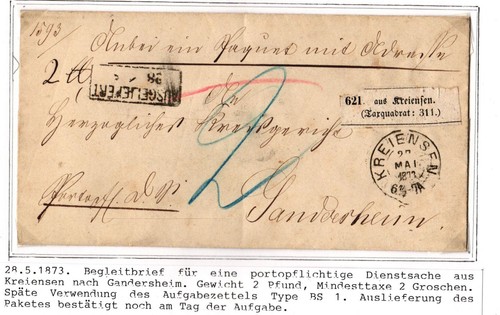 1593
Anbei ein Paquet mit Adresse
2 ℔
AUSGELIEFERT
28 5
An
Herzogliches Kreisgericht
2
621. aus Kreiensen.
(Taxquadrat: 311.)
KREIENSEN
27
MAI
1873
Portopfl. D. S.
Gandersheim.
28.5.1873. Begleitbrief für eine portopflichtige Dienstsache aus
Kreiensen nach Gandersheim. Gewicht 2 Pfund, Mindesttaxe 2 Groschen.
Späte Verwendung des Aufgabezettels Type BS 1. Auslieferung des
Paketes bestätigt noch am Tag der Aufgabe.